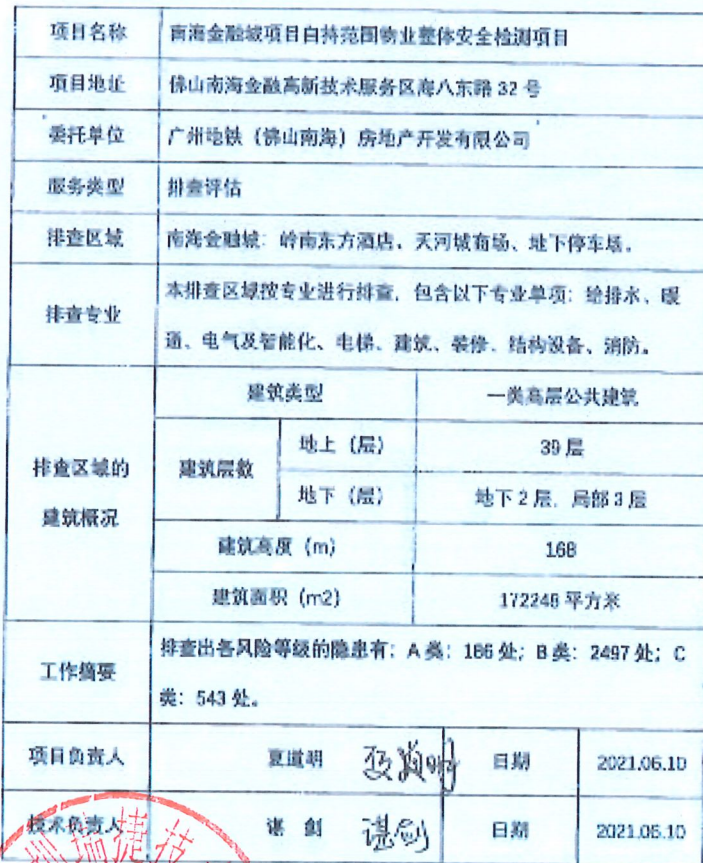 项目名称 南海金融城项目自持范围物业整体安全检测项目
项目地址 佛山南海金融高新技术服务区海八东路 32 号
委托单位 广州地铁（佛山南海）房地产开发有限公司
服务类型 排查评估
排查区域 南海金融城：岭南东方酒店、天河城商场、地下停车场。
排查专业 本排查区域按专业进行排查，包含以下专业单项：给排水、暖
通、电气及智能化、电梯、建筑、装修、结构设备、消防。
排查区域的
建筑概况
建筑类型 一类高层公共建筑
建筑层数 地上（层） 39 层
地下（层） 地下 2 层，局部 3 层
建筑高度（m） 168
建筑面积（m2） 172248 平方米
工作摘要 排查出各风险等级的隐患有：A 类：166 处；B 类：2497 处；C
类：543 处。
项目负责人 夏道明 夏道明 日期 2021.06.10
技术负责人 谌 剑 谌剑 日期 2021.06.10
圳瑞捷技